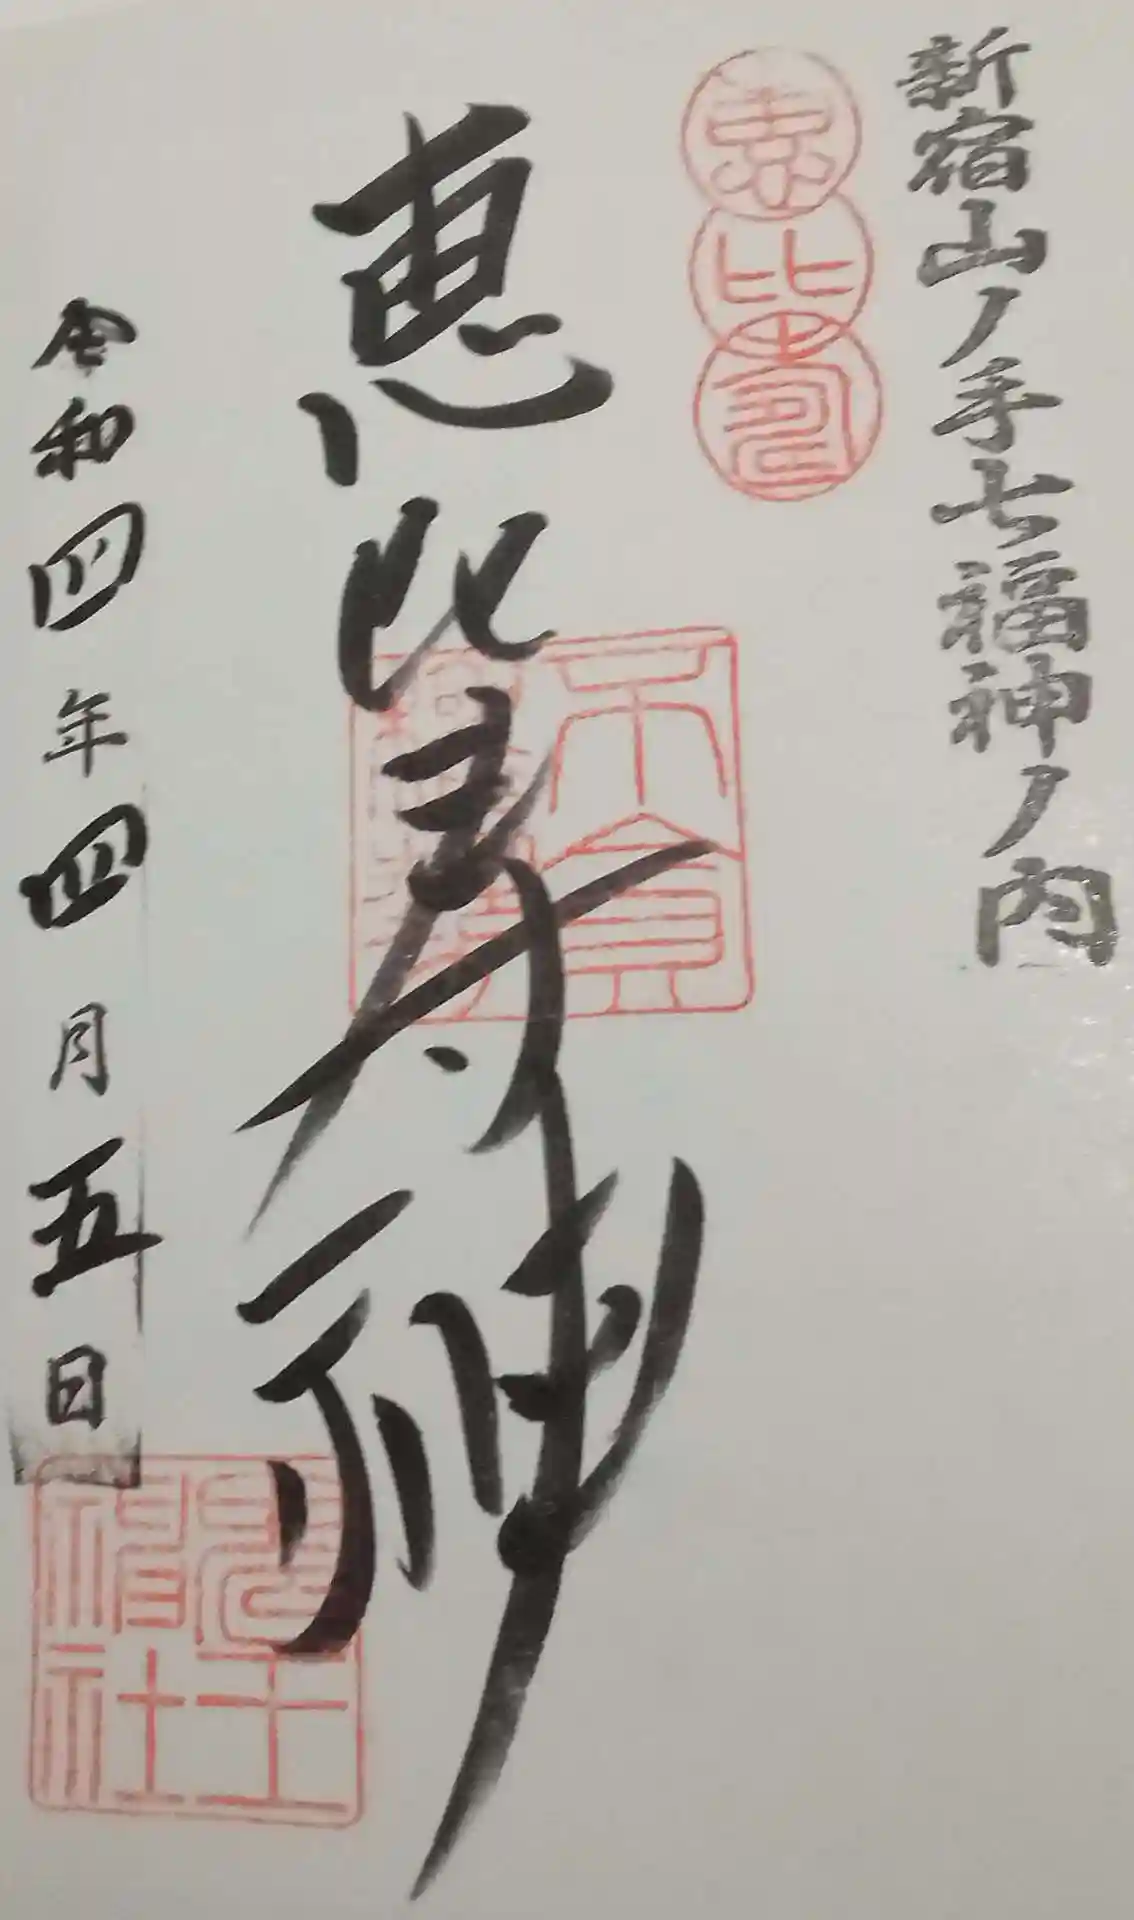 新宿山ノ手七福神ノ内
恵比寿
恵比寿神
令和四年四月五日
鬼王
神社